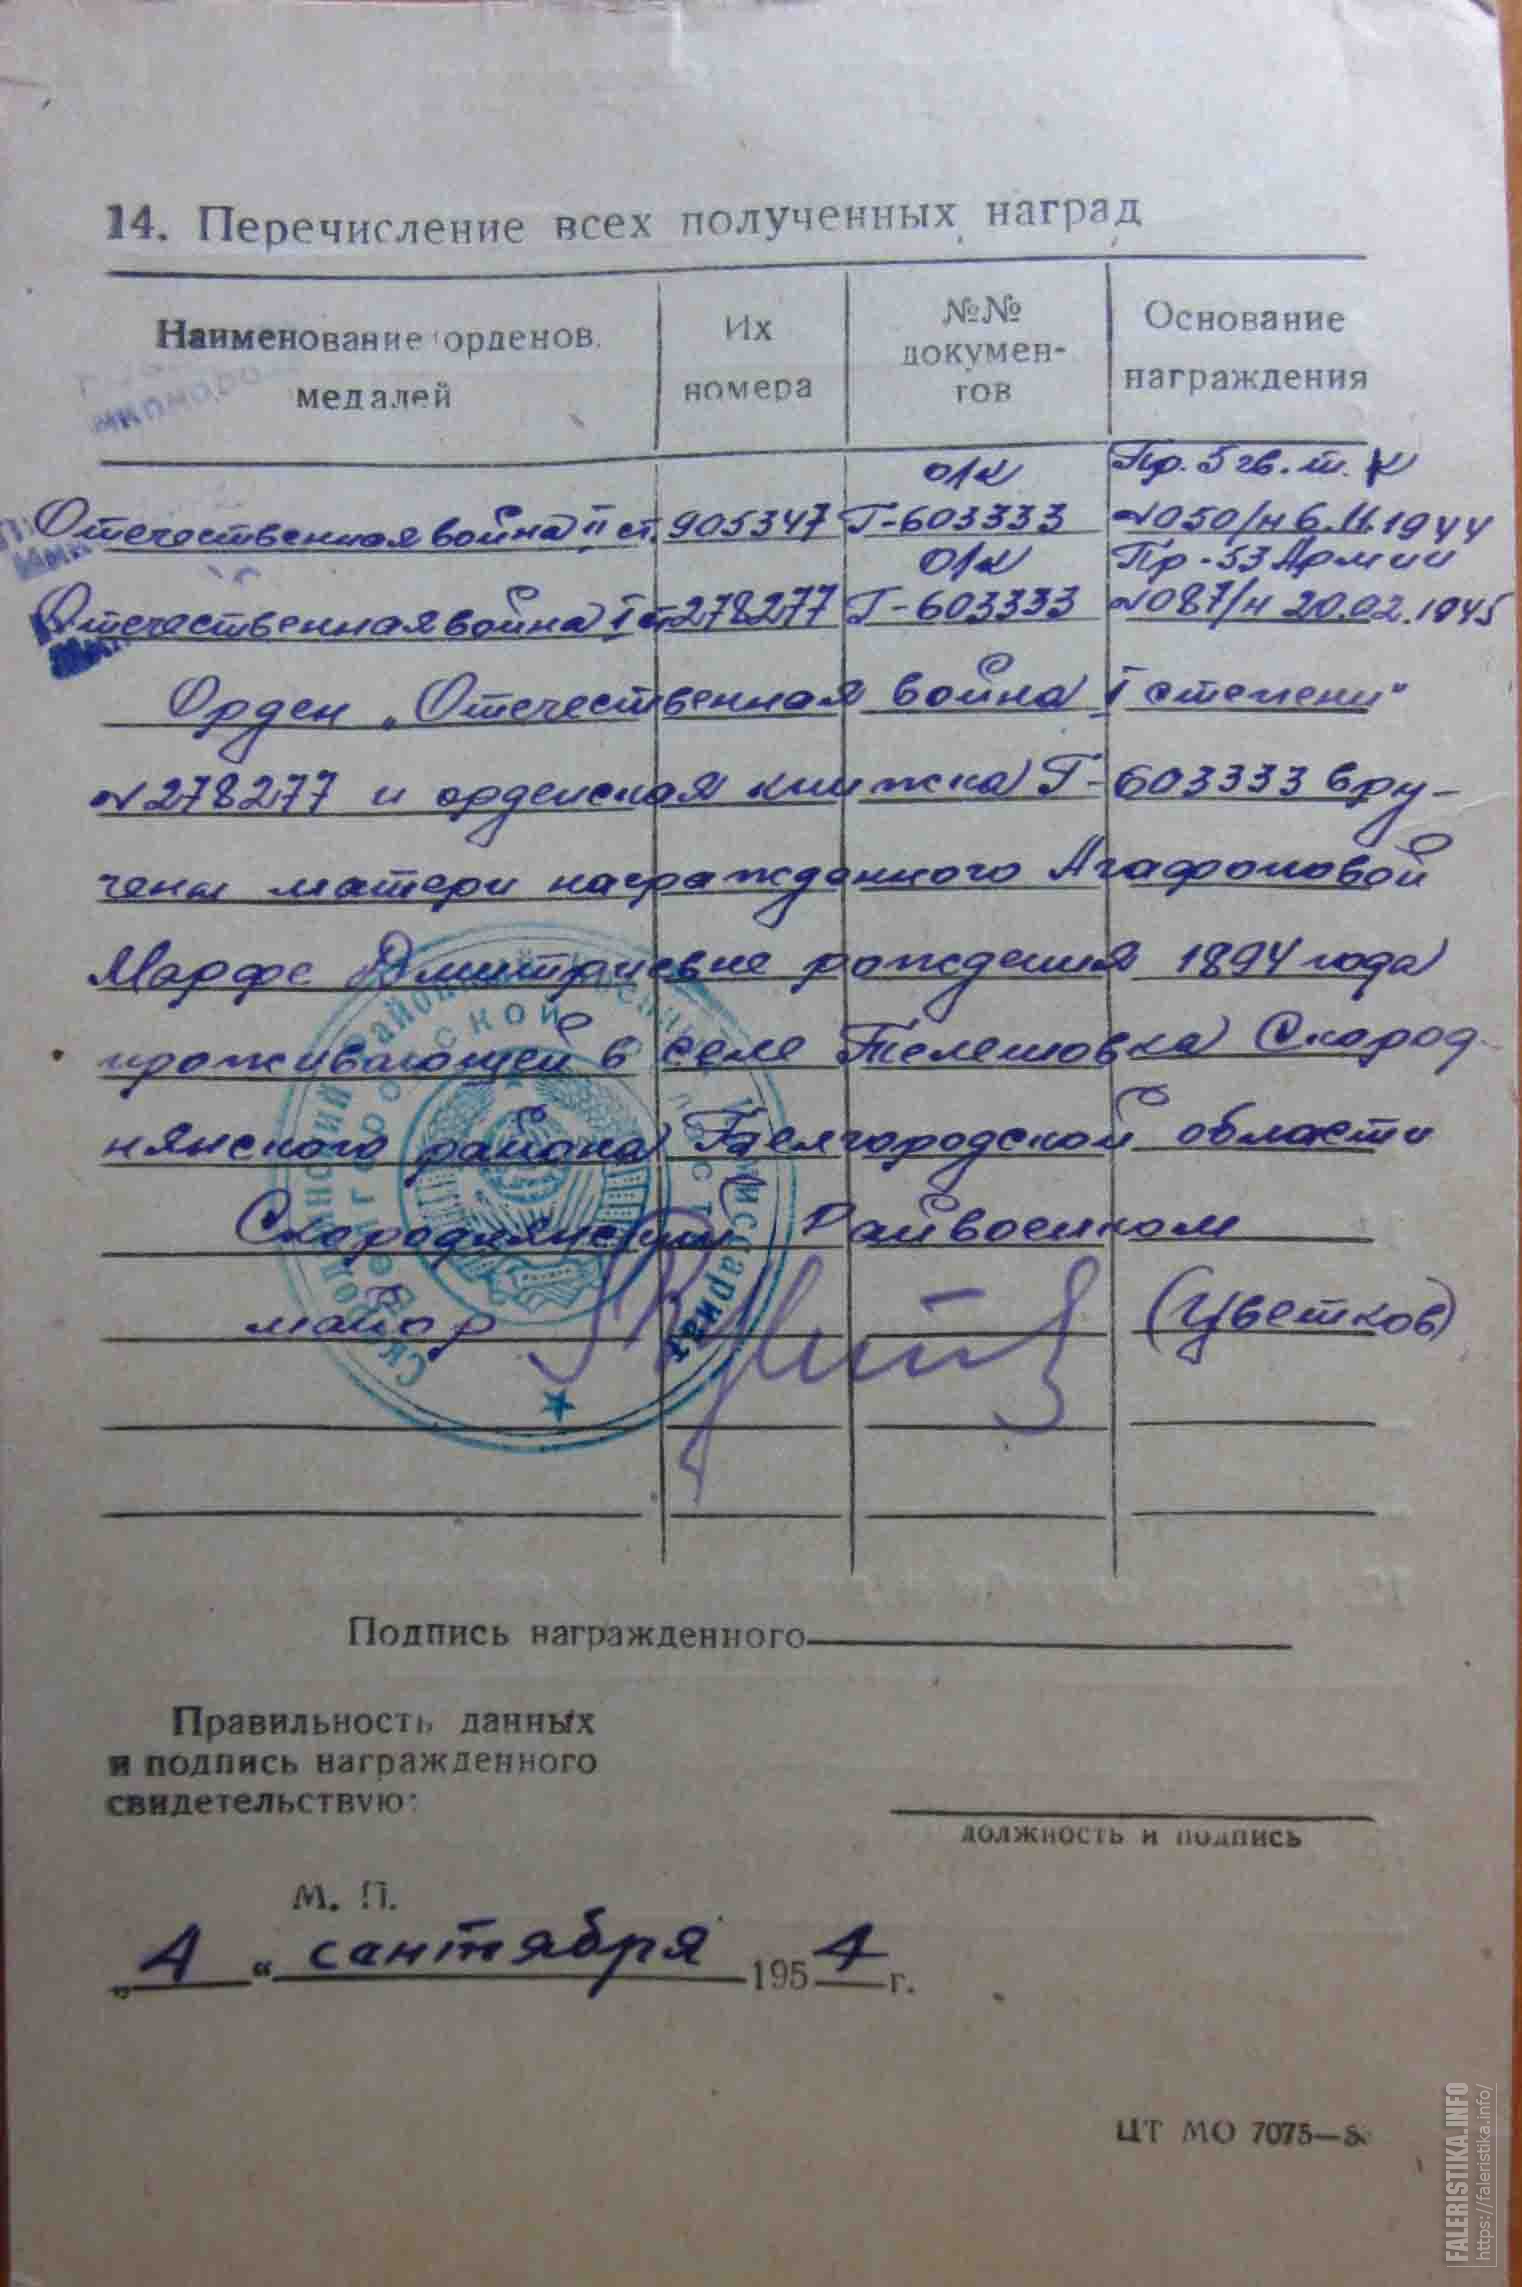 14. Перечисление всех полученных наград
Наименование орденов, медалей
Их номера
№№ докумен-
тов
Основание награждения
о/к
Пр. 5 гв. т. к
Отечественная война II ст. 905347 Г-603333 №050/н 6.11.1944
о/к
Пр-53 Армии
Отечественная война I ст. 278277 Г-603333 №087/н 20.02.1945
Орден „Отечественная война I степени"
№278277 и орденская книжка Г-603333 вру-
чены матери награжденного Агафоновой
Марфе Дмитриевне рождения 1894 года
проживающей в селе Телешовка Скород-
нянского района Белгородской области
Скороднянский Райвоенком
майор (Цветков)
Подпись награжденного
Правильность данных
и подпись награжденного
свидетельствую:
должность и подпись
М. П.
„4" сентября 1954 г.
ЦТ МО 7075—
FALERISTIKA.INFO
https://faleristika.info/